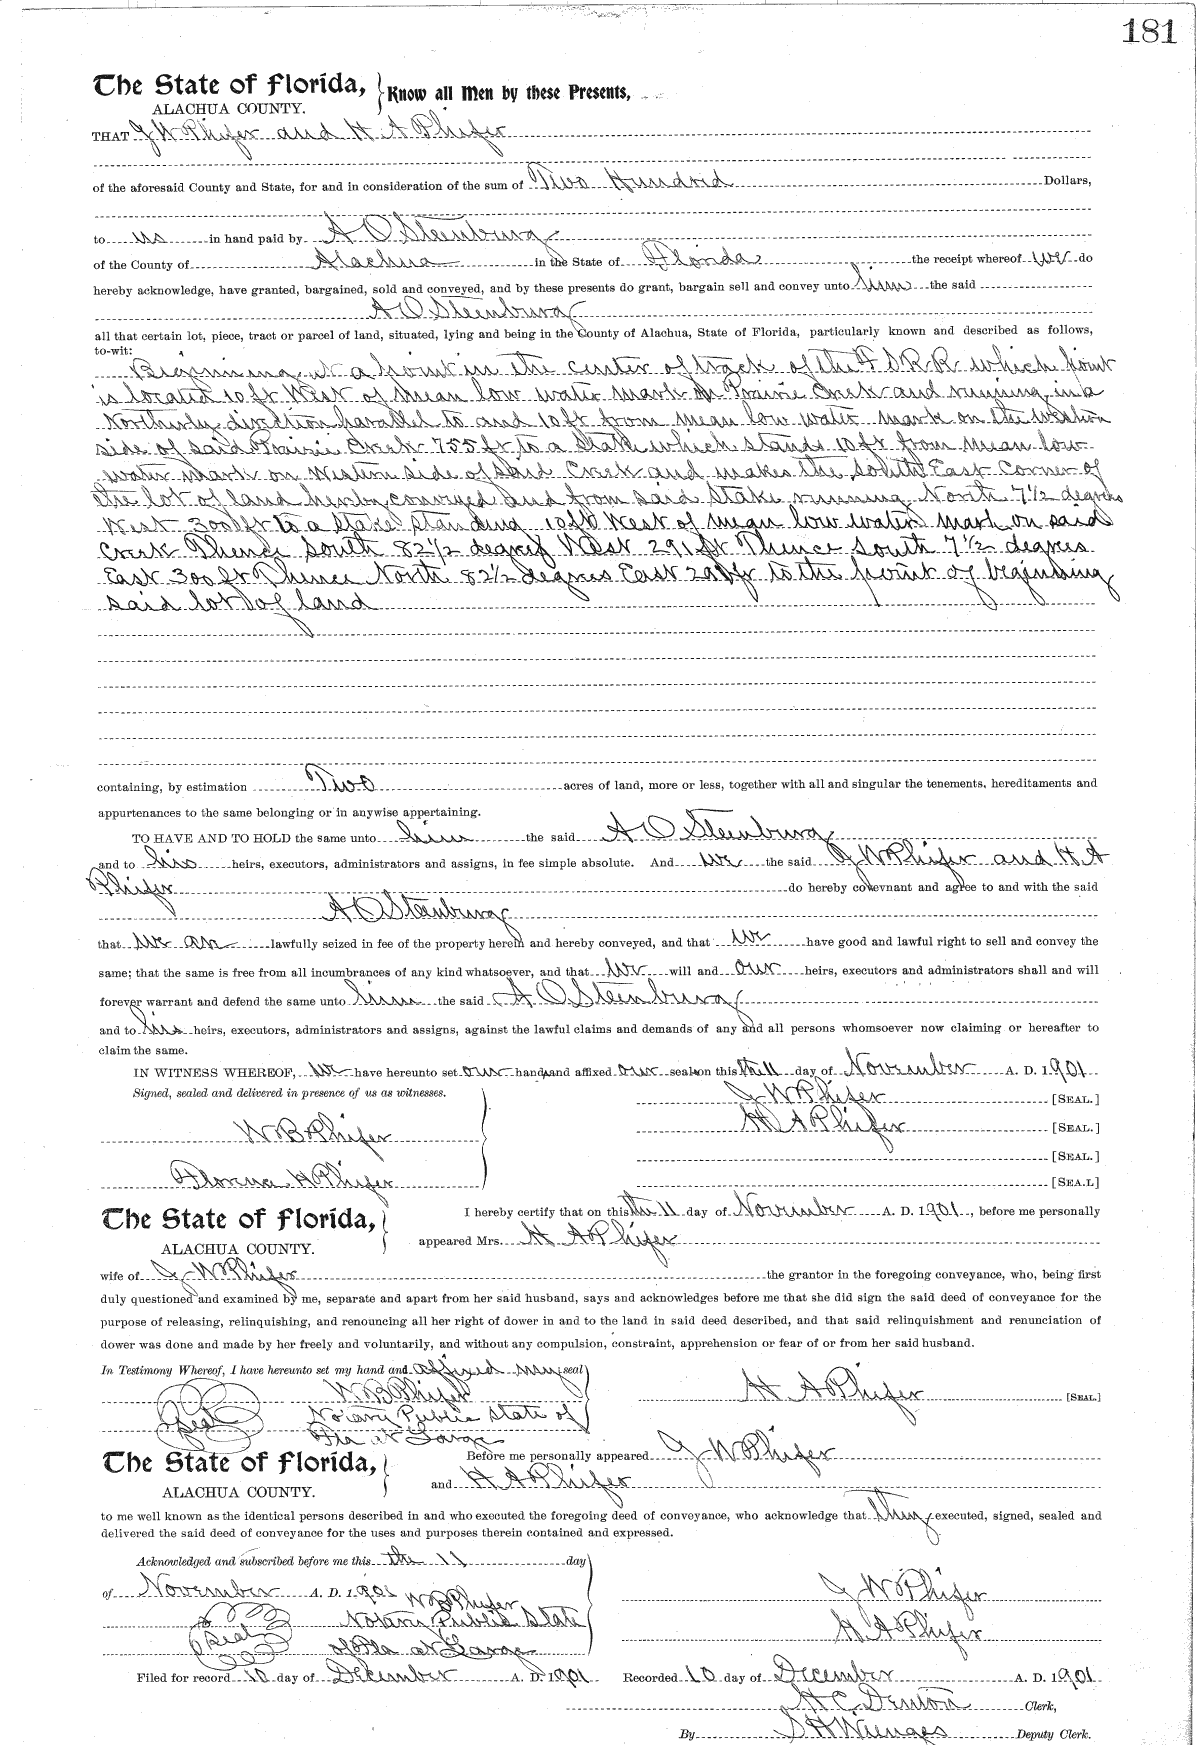 181
The State of Florida, } Know all Men by these Presents,
ALACHUA COUNTY.
THAT J W Phifer and H A Phifer
of the aforesaid County and State, for and in consideration of the sum of Two Hundrid Dollars,
to us in hand paid by A O Steenburg
of the County of Alachua in the State of Florida the receipt whereof we do
hereby acknowledge, have granted, bargained, sold and conveyed, and by these presents do grant, bargain sell and convey unto him the said
A O Steenburg
all that certain lot, piece, tract or parcel of land, situated, lying and being in the County of Alachua, State of Florida, particularly known and described as follows,
to-wit:
Beginning at a point in the center of track of the F S R R which point
is located 10 ft West of mean low water mark on Prairie Creek and running in a
Northerly direction parallel to and 10 ft from mean low water mark on the Western
side of said Prairie Creek 755 ft to a Stake which stands 10 ft from mean low
water mark on Western side of said Creek and makes the South East Corner of
the lot of land hereby conveyed and from said Stake running North 7½ degrees
West 300 ft to a Stake standing 10 ft West of mean low water mark on said
Creek Thence South 82½ degrees West 291 ft Thence South 7½ degrees
East 300 ft Thence North 82½ degrees East 291 ft to the point of beginning
said lot of land
containing, by estimation Two acres of land, more or less, together with all and singular the tenements, hereditaments and
appurtenances to the same belonging or in anywise appertaining.
TO HAVE AND TO HOLD the same unto him the said A O Steenburg
and to his heirs, executors, administrators and assigns, in fee simple absolute. And we the said J W Phifer and H A
Phifer do hereby covevnant and agree to and with the said
A O Steenburg
that we are lawfully seized in fee of the property herein and hereby conveyed, and that we have good and lawful right to sell and convey the
same; that the same is free from all incumbrances of any kind whatsoever, and that we will and our heirs, executors and administrators shall and will
forever warrant and defend the same unto him the said A O Steenburg
and to his heirs, executors, administrators and assigns, against the lawful claims and demands of any and all persons whomsoever now claiming or hereafter to
claim the same.
IN WITNESS WHEREOF, we have hereunto set our hands and affixed our seals on this the 11 day of November A. D. 1901
Signed, sealed and delivered in presence of us as witnesses. J W Phifer [SEAL.]
W B Phifer H A Phifer [SEAL.]
[SEAL.]
H Phifer [SEA.L]
The State of Florida, } I hereby certify that on this the 11 day of November A. D. 1901, before me personally
ALACHUA COUNTY. appeared Mrs. H A Phifer
wife of J W Phifer the grantor in the foregoing conveyance, who, being first
duly questioned and examined by me, separate and apart from her said husband, says and acknowledges before me that she did sign the said deed of conveyance for the
purpose of releasing, relinquishing, and renouncing all her right of dower in and to the land in said deed described, and that said relinquishment and renunciation of
dower was done and made by her freely and voluntarily, and without any compulsion, constraint, apprehension or fear of or from her said husband.
In Testimony Whereof, I have hereunto set my hand and affixed my seal
W B Phifer H A Phifer [SEAL]
Seal Notary Public State of
Fla at Large
The State of Florida, } Before me personally appeared J W Phifer
ALACHUA COUNTY. and H A Phifer
to me well known as the identical persons described in and who executed the foregoing deed of conveyance, who acknowledge that they executed, signed, sealed and
delivered the said deed of conveyance for the uses and purposes therein contained and expressed.
Acknowledged and subscribed before me this the 11 day
of November A. D. 1901 W B Phifer J W Phifer
Seal Notary Public State H A Phifer
of Fla at Large
Filed for record 10 day of December A. D. 1901 Recorded 10 day of December A. D. 1901
H C Denton Clerk,
By S H Wienges Deputy Clerk.